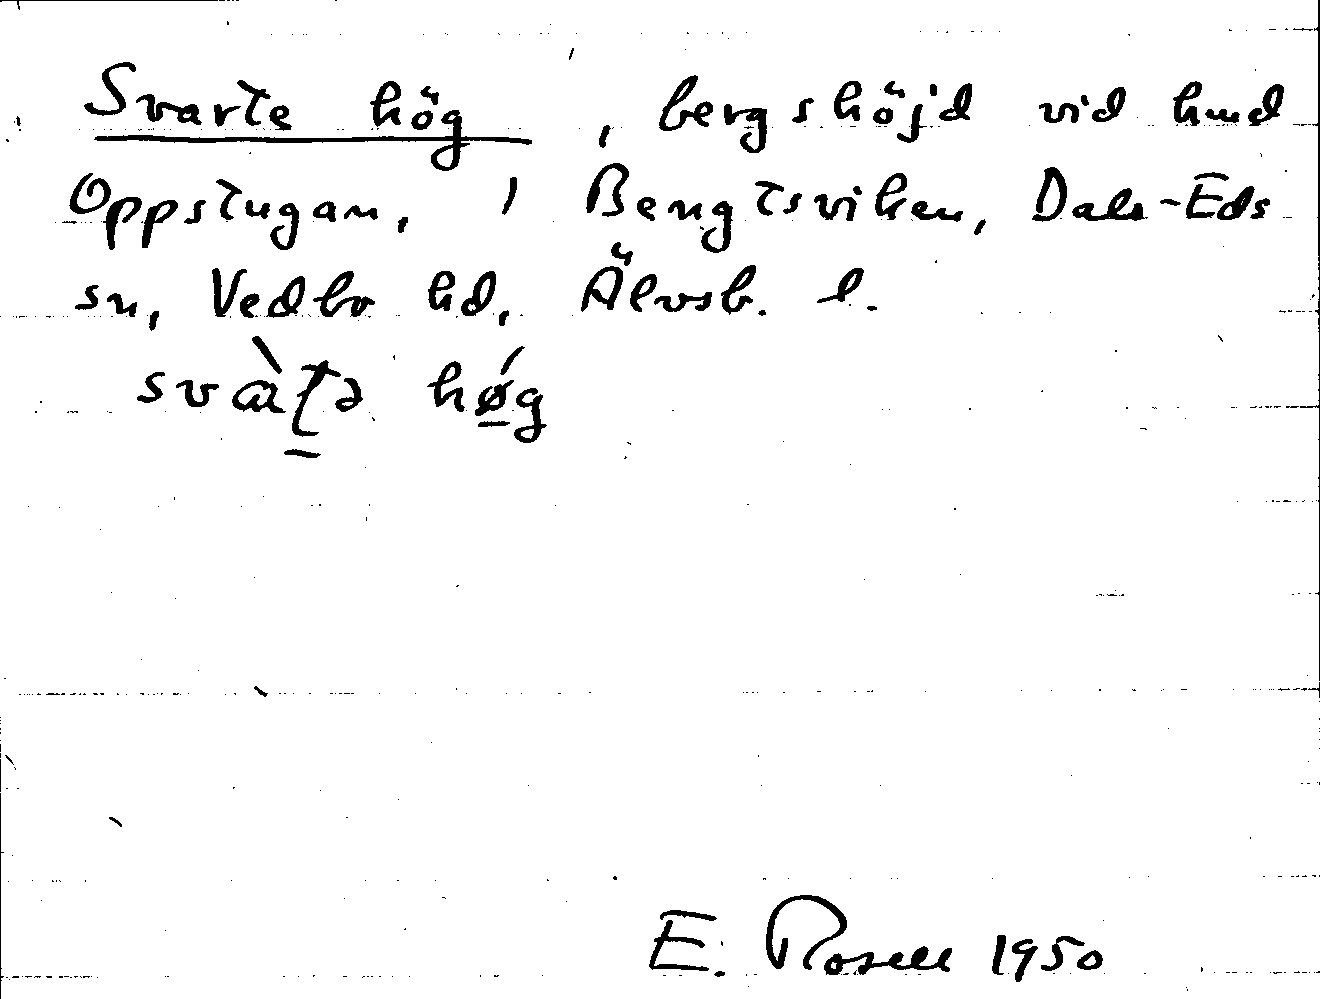 Svarte hög, bergshöjd vid lmd
Oppstugan, i Bengtsviken, Dals-Eds
sn, Vedbo hd, Älvsb. l.
svàʈə høg
E. Rosell 1950